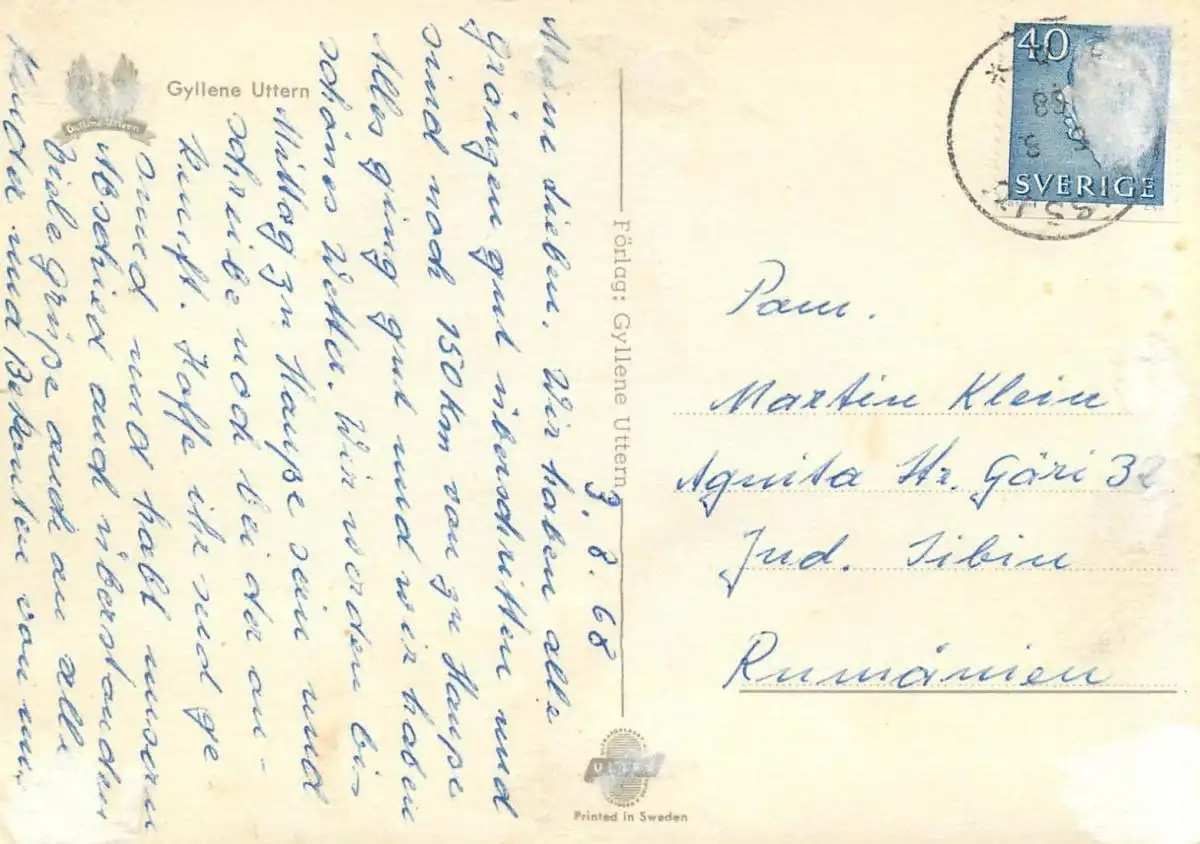 Gyllene Uttern
Gyllene Uttern
3. 8. 68
Meine Lieben. Wir haben alle
gränzen gut überschritten und
sind noch 150 km von zu Hauße
Alles ging gut und wir haben
schönes Wetter. Wir werden bis
Mittag zu Hauße sein und
schreibe noch bei der an-
kunft. Hoffe ihr seid ge
sund und habt unsern
Abschied auch überstanden
Viele grüße auch an alle
Kinder und Bekanten von uns
Förlag: Gyllene Uttern
ULTRA
Printed in Sweden
40
SVERIGE
Fam.
Martin Klein
Agnita Str. Gări 32
Jud. Sibiu
Rumänien